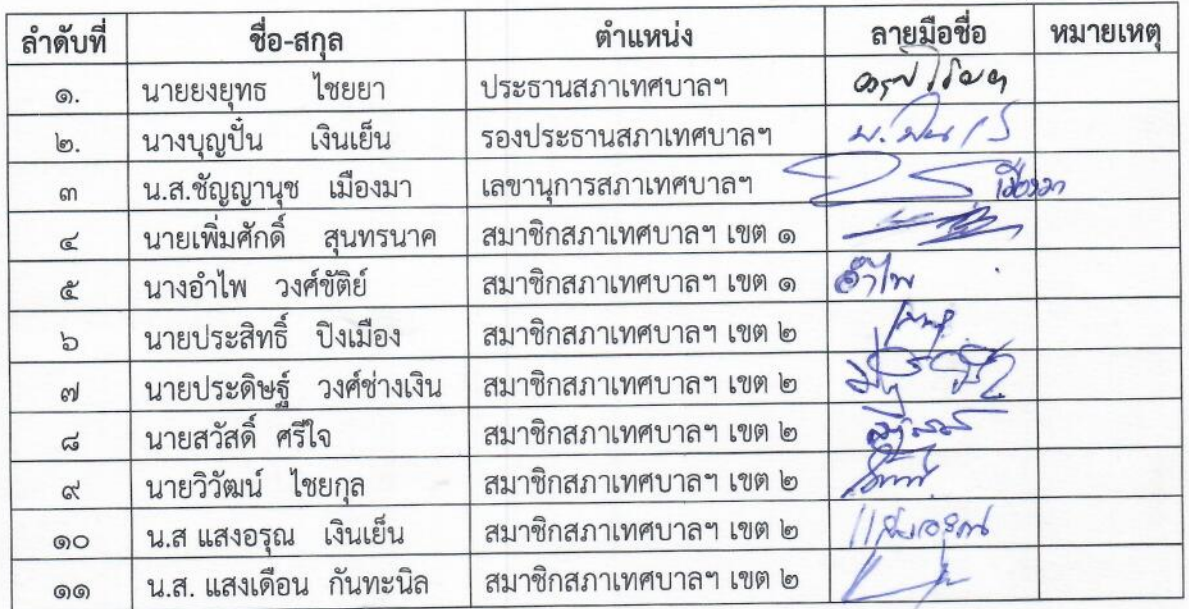 ลำดับที่ ชื่อ-สกุล ตำแหน่ง ลายมือชื่อ หมายเหตุ
๑. นายยงยุทธ ไชยยา ประธานสภาเทศบาลฯ
๒. นางบุญปั๋น เงินเย็น รองประธานสภาเทศบาลฯ
๓ น.ส.ชัญญานุช เมืองมา เลขานุการสภาเทศบาลฯ
๔ นายเพิ่มศักดิ์ สุนทรนาค สมาชิกสภาเทศบาลฯ เขต ๑
๕ นางอำไพ วงศ์ขัติย์ สมาชิกสภาเทศบาลฯ เขต ๑ อำไพ
๖ นายประสิทธิ์ ปิงเมือง สมาชิกสภาเทศบาลฯ เขต ๒
๗ นายประดิษฐ์ วงศ์ช่างเงิน สมาชิกสภาเทศบาลฯ เขต ๒
๘ นายสวัสดิ์ ศรีใจ สมาชิกสภาเทศบาลฯ เขต ๒
๙ นายวิวัฒน์ ไชยกุล สมาชิกสภาเทศบาลฯ เขต ๒
๑๐ น.ส แสงอรุณ เงินเย็น สมาชิกสภาเทศบาลฯ เขต ๒ แสงอรุณ
๑๑ น.ส. แสงเดือน กันทะนิล สมาชิกสภาเทศบาลฯ เขต ๒